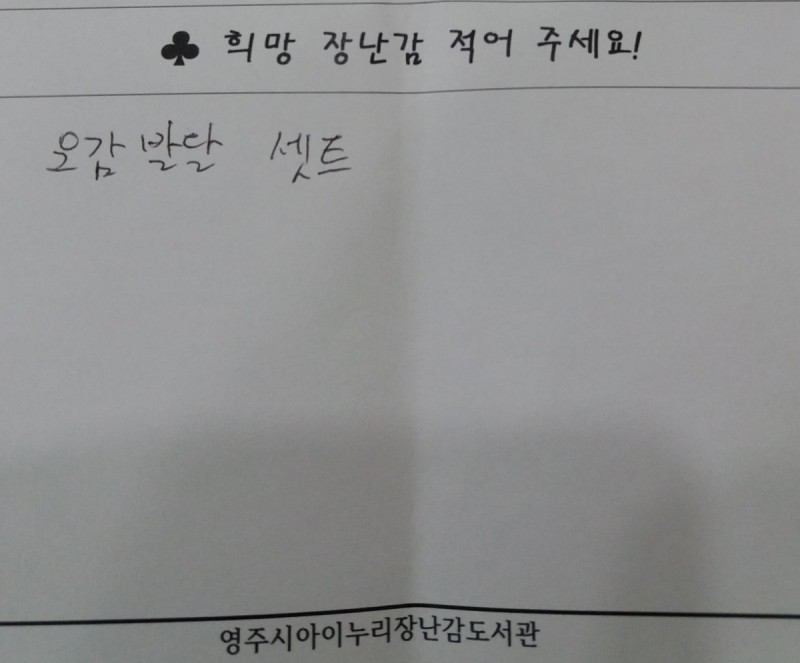 ♣ 희망 장난감 적어 주세요!
오감발달 셋트
영주시아이누리장난감도서관